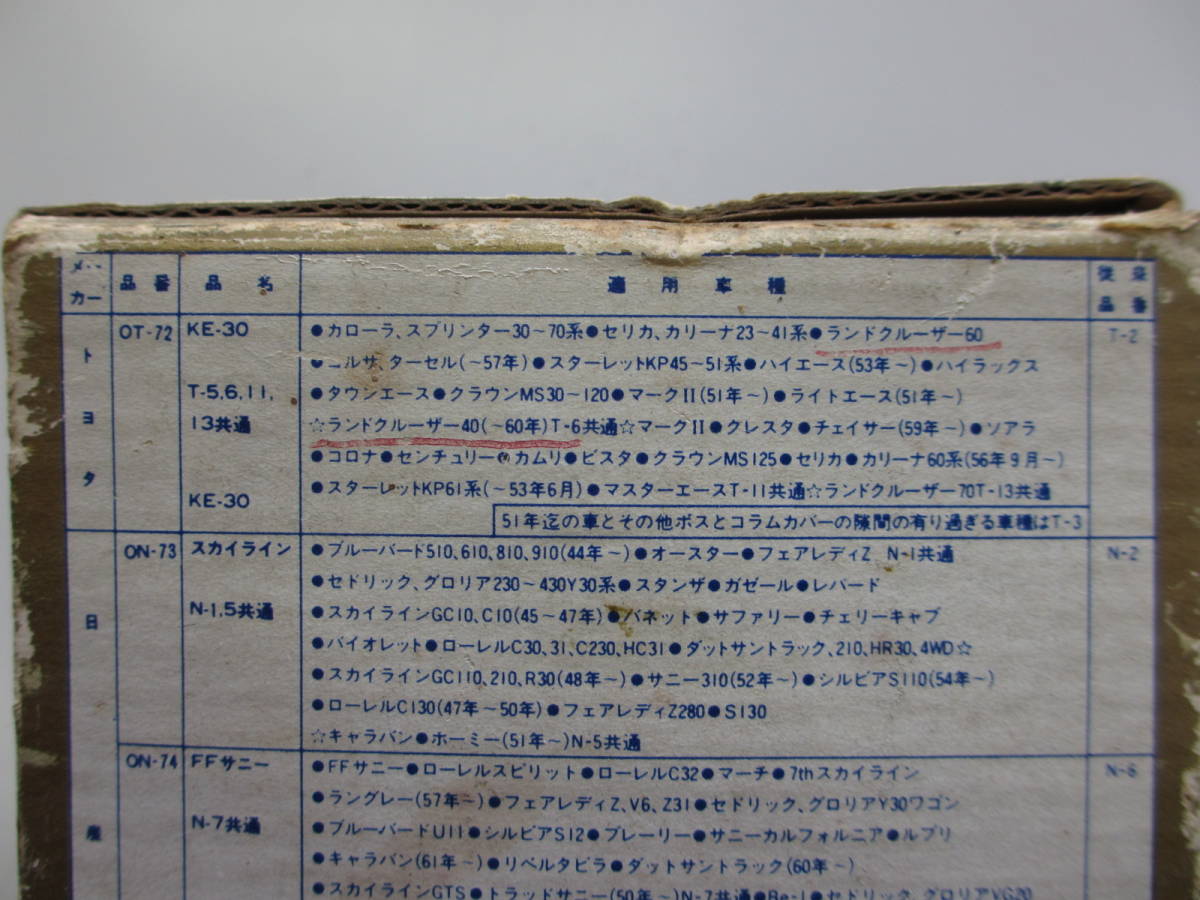 メーカー 品番 品名 適用車種 従来品番
トヨタ OT-72 KE-30 ●カローラ、スプリンター30～70系●セリカ、カリーナ23～41系●ランドクルーザー60 T-2
●コルサ、ターセル(～57年)●スターレットKP45～51系●ハイエース(53年～)●ハイラックス
T-5,6,11, ●タウンエース●クラウンMS30～120●マークII(51年～)●ライトエース(51年～)
13共通 ☆ランドクルーザー40(～60年)T-6共通☆マークII●クレスタ●チェイサー(59年～)●ソアラ
●コロナ●センチュリー●カムリ●ビスタ●クラウンMS125●セリカ●カリーナ60系(56年9月～)
KE-30 ●スターレットKP61系(～53年6月)●マスターエースT-11共通☆ランドクルーザー70T-13共通
51年迄の車とその他ボスとコラムカバーの隙間の有り過ぎる車種はT-3
日産 ON-73 スカイライン ●ブルーバード510、610、810、910(44年～)●オースター●フェアレディZ N-1共通 N-2
●セドリック、グロリア230～430Y30系●スタンザ●ガゼール●レパード
N-1,5共通 ●スカイラインGC10、C10(45～47年)●バネット●サファリー●チェリーキャブ
●バイオレット●ローレルC30、31、C230、HC31●ダットサントラック、210、HR30、4WD☆
●スカイラインGC110、210、R30(48年～)●サニー310(52年～)●シルビアS110(54年～)
●ローレルC130(47年～50年)●フェアレディZ280●S130
☆キャラバン●ホーミー(51年～)N-5共通
ON-74 FFサニー ●FFサニー●ローレルスピリット●ローレルC32●マーチ●7thスカイライン N-6
●ラングレー(57年～)●フェアレディZ、V6、Z31●セドリック、グロリアY30ワゴン
N-7共通 ●ブルーバードU11●シルビアS12●プレーリー●サニーカルフォルニア●ルプリ
●キャラバン(61年～)●リベルタビラ●ダットサントラック(60年～)
●スカイラインGTS●トラッドサニー(50年～)N-7共通●Be-1●セドリック、グロリアVG20